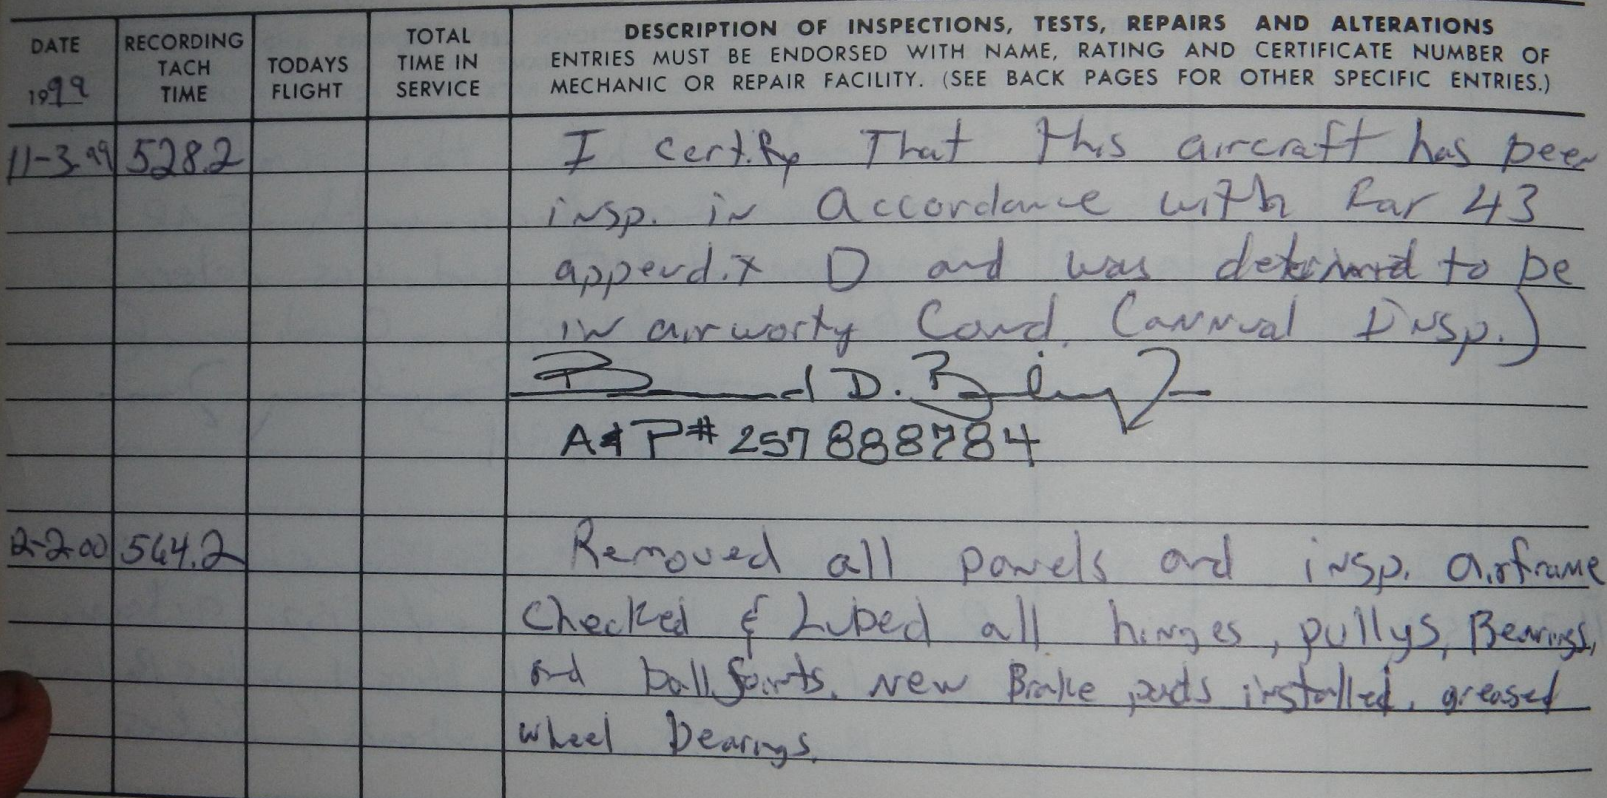 DATE 1999
RECORDING TACH TIME
TODAYS FLIGHT
TOTAL TIME IN SERVICE
DESCRIPTION OF INSPECTIONS, TESTS, REPAIRS AND ALTERATIONS
ENTRIES MUST BE ENDORSED WITH NAME, RATING AND CERTIFICATE NUMBER OF
MECHANIC OR REPAIR FACILITY. (SEE BACK PAGES FOR OTHER SPECIFIC ENTRIES.)
11-3-99 528.2 I certify That this aircraft has been
insp. in accordance with Far 43
appendix D and was determind to be
in airworty Cond. (annual Insp.)
D.
A&P# 257888784
2-2-00 564.2 Removed all panels and insp. airframe
checked & Lubed all hinges, pullys, Bearings,
and ball joints. New Brake pads installed, greased
wheel bearings.